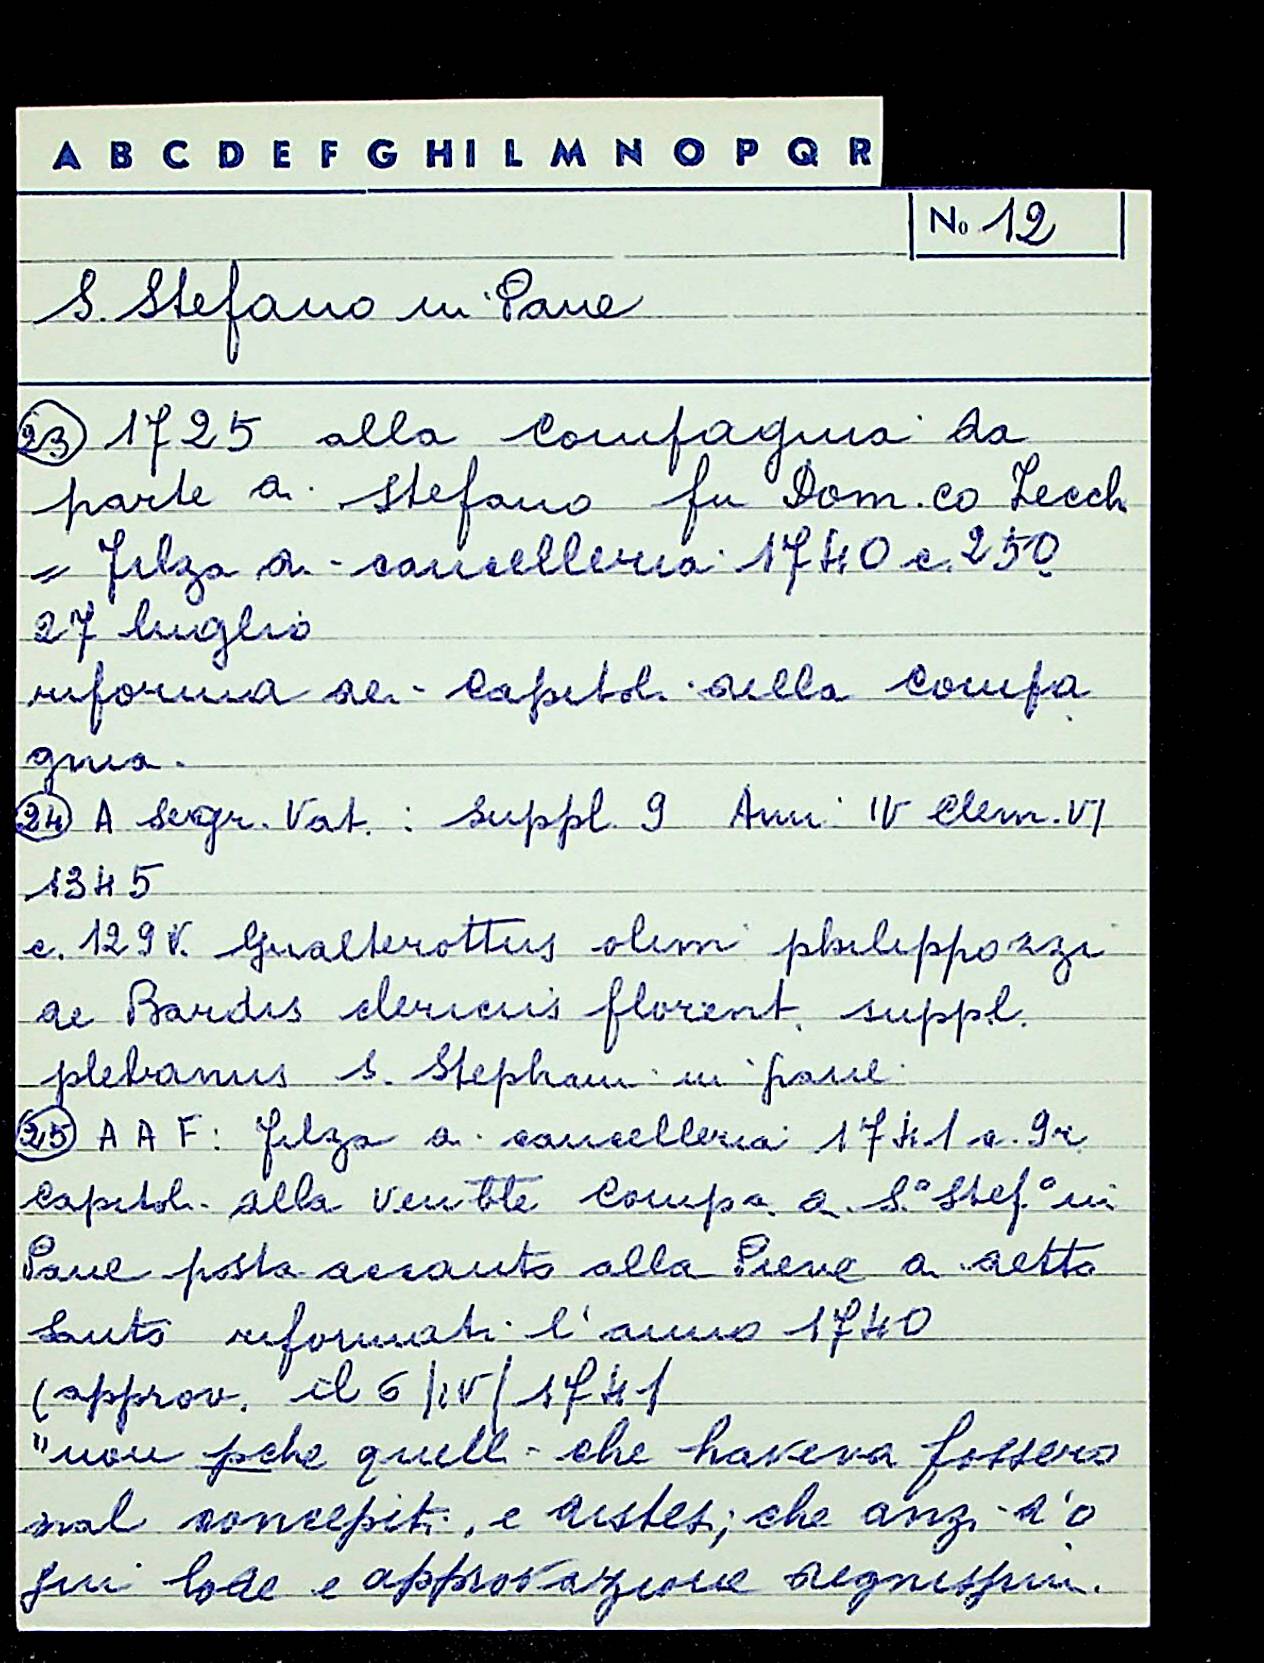 A B C D E F G H I L M N O P Q R
No 12
S. Stefano in Pane
23) 1725 alla Compagnia da
parte di Stefano fu Dom.co Zecch
= Filza di cancelleria 1740 c. 250
27 luglio
riforma dei Capitoli della compa
gnia.
24) A Segr. Vat.: suppl. 9 Anni IV Clem. VI
1345
c. 129 v. Gualterottus olim philippozzi
de Bardis clericus florent. suppl.
plebanus S. Stephani in pane
25) A A F: filza di cancelleria 1741 c. 9r
Capitoli della Ven.ble Comp.a di S.º Stef.º in
Pane posta accanto alla Pieve di detto
Santo riformati l'anno 1740
(approv. il 6/IV/1741
"non pche quelli che haveva fossero
mal concepiti, e distesi; che anzi d'o
gni lode e approvazione degnissimi.